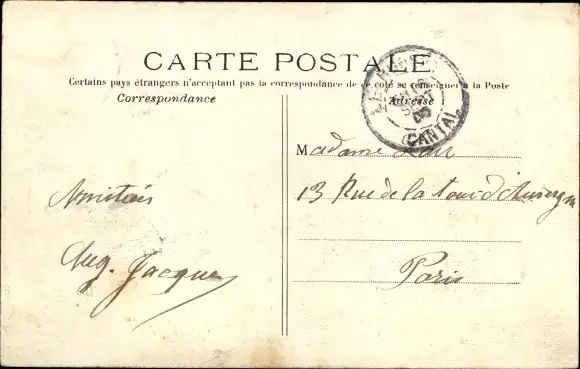 CARTE POSTALE
Certains pays étrangers n'acceptent pas la correspondance de ce côté se renseigner à la Poste
Correspondance
Adresse
CANTAL
Madame
13 Rue de la tour d'Auvergne
Paris
Amitiés
Aug. Jacques